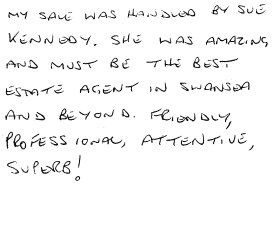 MY SALE WAS HANDLED BY SUE
KENNEDY. SHE WAS AMAZING
AND MUST BE THE BEST
ESTATE AGENT IN SWANSEA
AND BEYOND. FRIENDLY,
PROFESSIONAL, ATTENTIVE,
SUPERB!